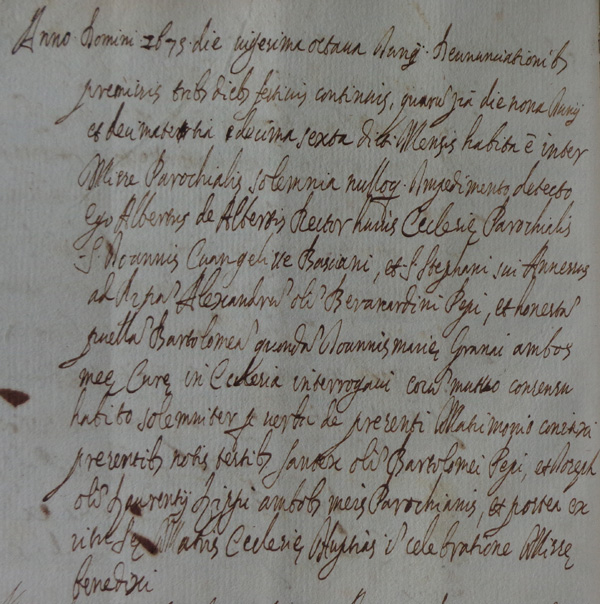 Anno Domini 1675 die vigesima octava Iunij Denunciationib
premissis tribs diebs festivis continuis, quarū p.ª die nona Iunij
et decimatertia decima sexta dict. Mensis habita ē inter
Missę Parochialis solemnia nulloq. Impedimento detecto
Ego Albertus de Albertis Rector huius Ecclesię Parochialis
S. Ioannis Evangeliste Basciani, et S. Stephani sui Annexus
ad Alexandrū olī Beranardini Pepi, et honestā
puellā Bartolomeā quondā Ioannis marię Granai ambos
meę Curę in Ecclesia interrogavi eorū mutuo consensu
habito solemniter p verba de presenti Matrimonio coniūxi
presentibs notis testibs Sancte olī Bartolomei Pepi, et Ioseph
olī Laurentij Lippi ambobs meis Parochianis, et postea ex
ritu Sę Matris Ecclesię Nuptias ī celebratione Missę
benedixi